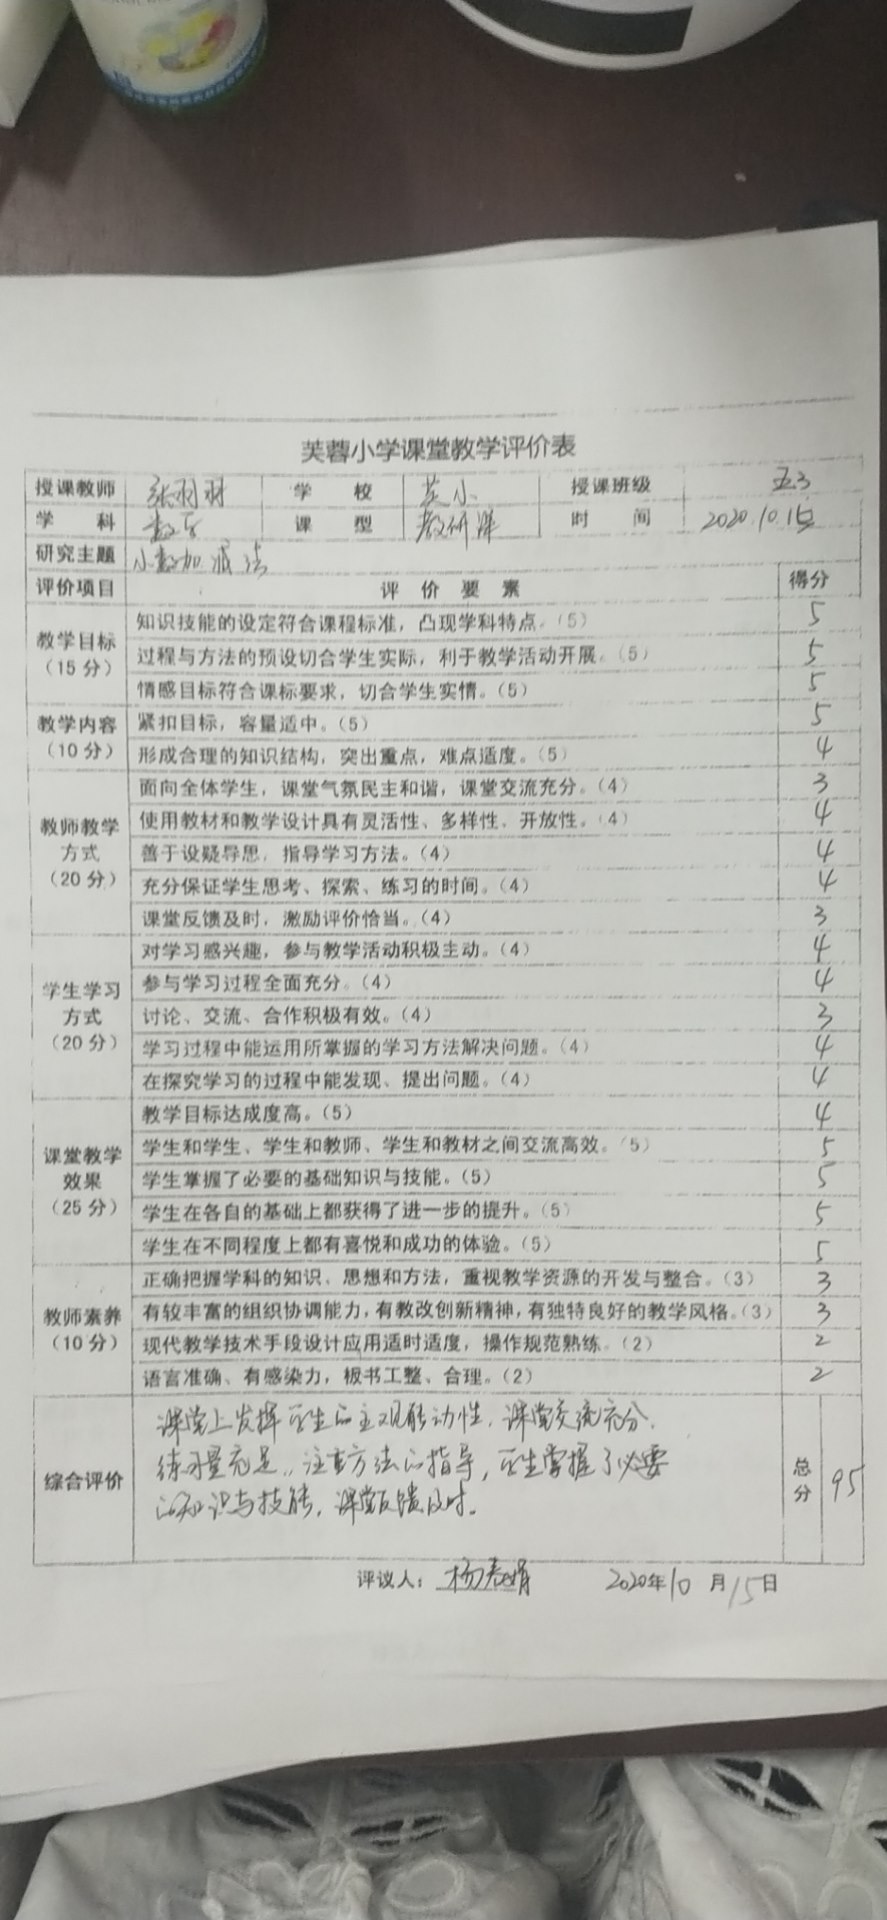 芙蓉小学课堂教学评价表
授课教师 张羽 学 校 芙小 授课班级 五3
学 科 数学 课 型 教研课 时 间 2020.10.15
研究主题 小数加减法
评价项目 评 价 要 素 得分
教学目标（15分）
知识技能的设定符合课程标准，凸现学科特点。（5） 5
过程与方法的预设切合学生实际，利于教学活动开展。（5） 5
情感目标符合课标要求，切合学生实情。（5） 5
教学内容（10分）
紧扣目标，容量适中。（5） 5
形成合理的知识结构，突出重点，难点适度。（5） 4
教师教学方式（20分）
面向全体学生，课堂气氛民主和谐，课堂交流充分。（4） 3
使用教材和教学设计具有灵活性、多样性、开放性。（4） 4
善于设疑导思，指导学习方法。（4） 4
充分保证学生思考、探索、练习的时间。（4） 4
课堂反馈及时，激励评价恰当。（4） 3
学生学习方式（20分）
对学习感兴趣，参与教学活动积极主动。（4） 4
参与学习过程全面充分。（4） 4
讨论、交流、合作积极有效。（4） 3
学习过程中能运用所掌握的学习方法解决问题。（4） 4
在探究学习的过程中能发现、提出问题。（4） 4
课堂教学效果（25分）
教学目标达成度高。（5） 4
学生和学生、学生和教师、学生和教材之间交流高效。（5） 5
学生掌握了必要的基础知识与技能。（5） 5
学生在各自的基础上都获得了进一步的提升。（5） 5
学生在不同程度上都有喜悦和成功的体验。（5） 5
教师素养（10分）
正确把握学科的知识、思想和方法，重视教学资源的开发与整合。（3） 3
有较丰富的组织协调能力，有教改创新精神，有独特良好的教学风格。（3） 3
现代教学技术手段设计应用适时适度，操作规范熟练。（2） 2
语言准确、有感染力，板书工整、合理。（2） 2
综合评价
课堂上发挥学生的主观能动性，课堂交流充分，
练习量充足，注重方法的指导，学生掌握了必要
的知识与技能，课堂反馈及时。
总分 95
评议人：杨春娟 2020年10月15日